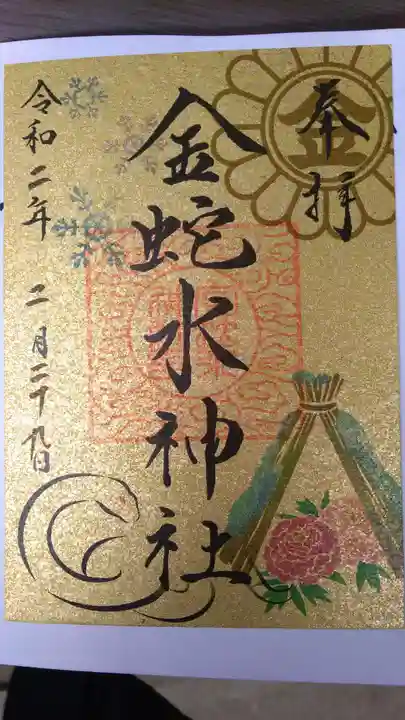 奉拝
金
金蛇水神社
令和二年 二月二十九日